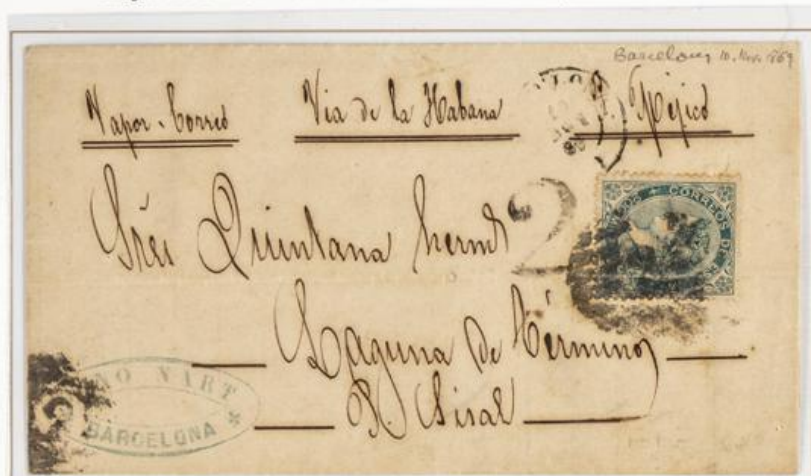 Barcelona 10. Nov. 1869
Vapor-Correo Via de la Habana Méjico
Sres Quintana herms
2
CORREOS DE
Laguna de Términos
NO NART
BARCELONA
R. Sisal